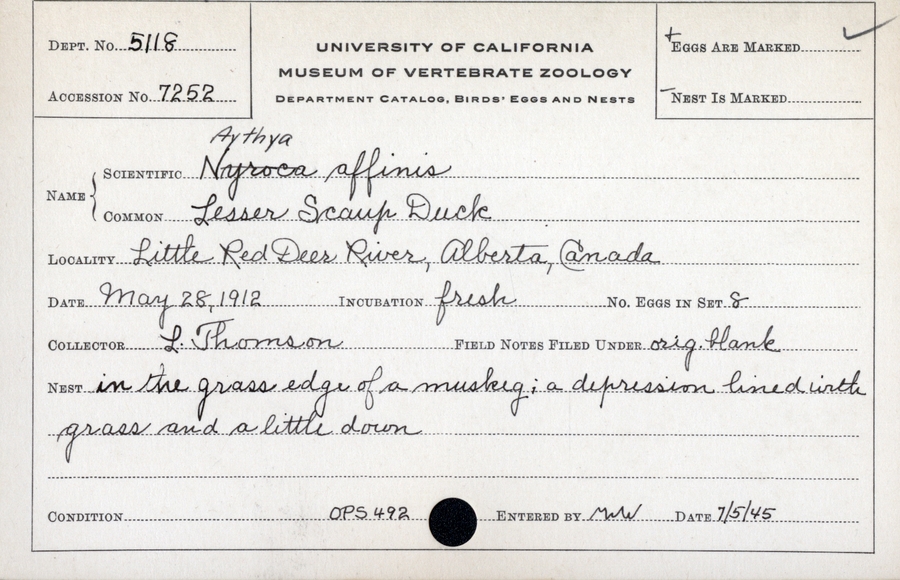 DEPT. No. 5118
UNIVERSITY OF CALIFORNIA
+EGGS ARE MARKED ✓
MUSEUM OF VERTEBRATE ZOOLOGY
ACCESSION No. 7252
DEPARTMENT CATALOG, BIRDS' EGGS AND NESTS
-NEST IS MARKED
Aythya
NAME { SCIENTIFIC Nyroca affinis
COMMON Lesser Scaup Duck
LOCALITY Little Red Deer River, Alberta, Canada
DATE May 28, 1912 INCUBATION fresh No. EGGS IN SET 8
COLLECTOR L. Thomson FIELD NOTES FILED UNDER orig. blank
NEST in the grass edge of a muskeg; a depression lined with
grass and a little down
CONDITION OPS 492 ENTERED BY DATE 7/5/45